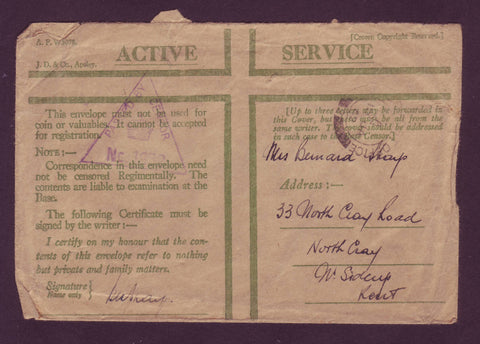 A. F. W3078.
[Crown Copyright Reserved.]
J. D. & Co., Apsley.
ACTIVE SERVICE
This envelope must not be used for
coin or valuables. It cannot be accepted
for registration.
NOTE:—
Correspondence in this envelope need
not be censored Regimentally. The
contents are liable to examination at the
Base.
The following Certificate must be
signed by the writer:—
I certify on my honour that the con-
tents of this envelope refer to nothing
but private and family matters.
Signature
Name only
[Up to three letters may be forwarded in
this Cover, but must be all from the
same writer. The cover should be addressed
in such case to the Base Censor.
Mrs Bernard
Address:—
33 North Cray Road
North Cray
Nr. Sidcup
Kent
PASSED BY CENSOR
OFFICE